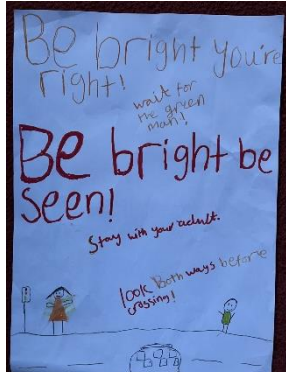 Be bright you're
right!
wait for
the green
man!
Be bright be
seen!
Stay with your adult.
look Both ways before
crossing!